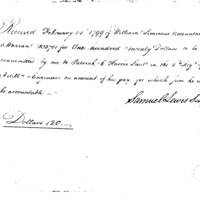 Received February 14th 1799 of William Simmons Accountant
a Warrant No 8701 for One hundred Twenty Dollars to be
transmitted by me to Patrick C Harris Lieut in the 2d Regt of
Artills & Engineers on account of his pay for which sum he is to
be accountable
Samuel Lewis
Dollars 120